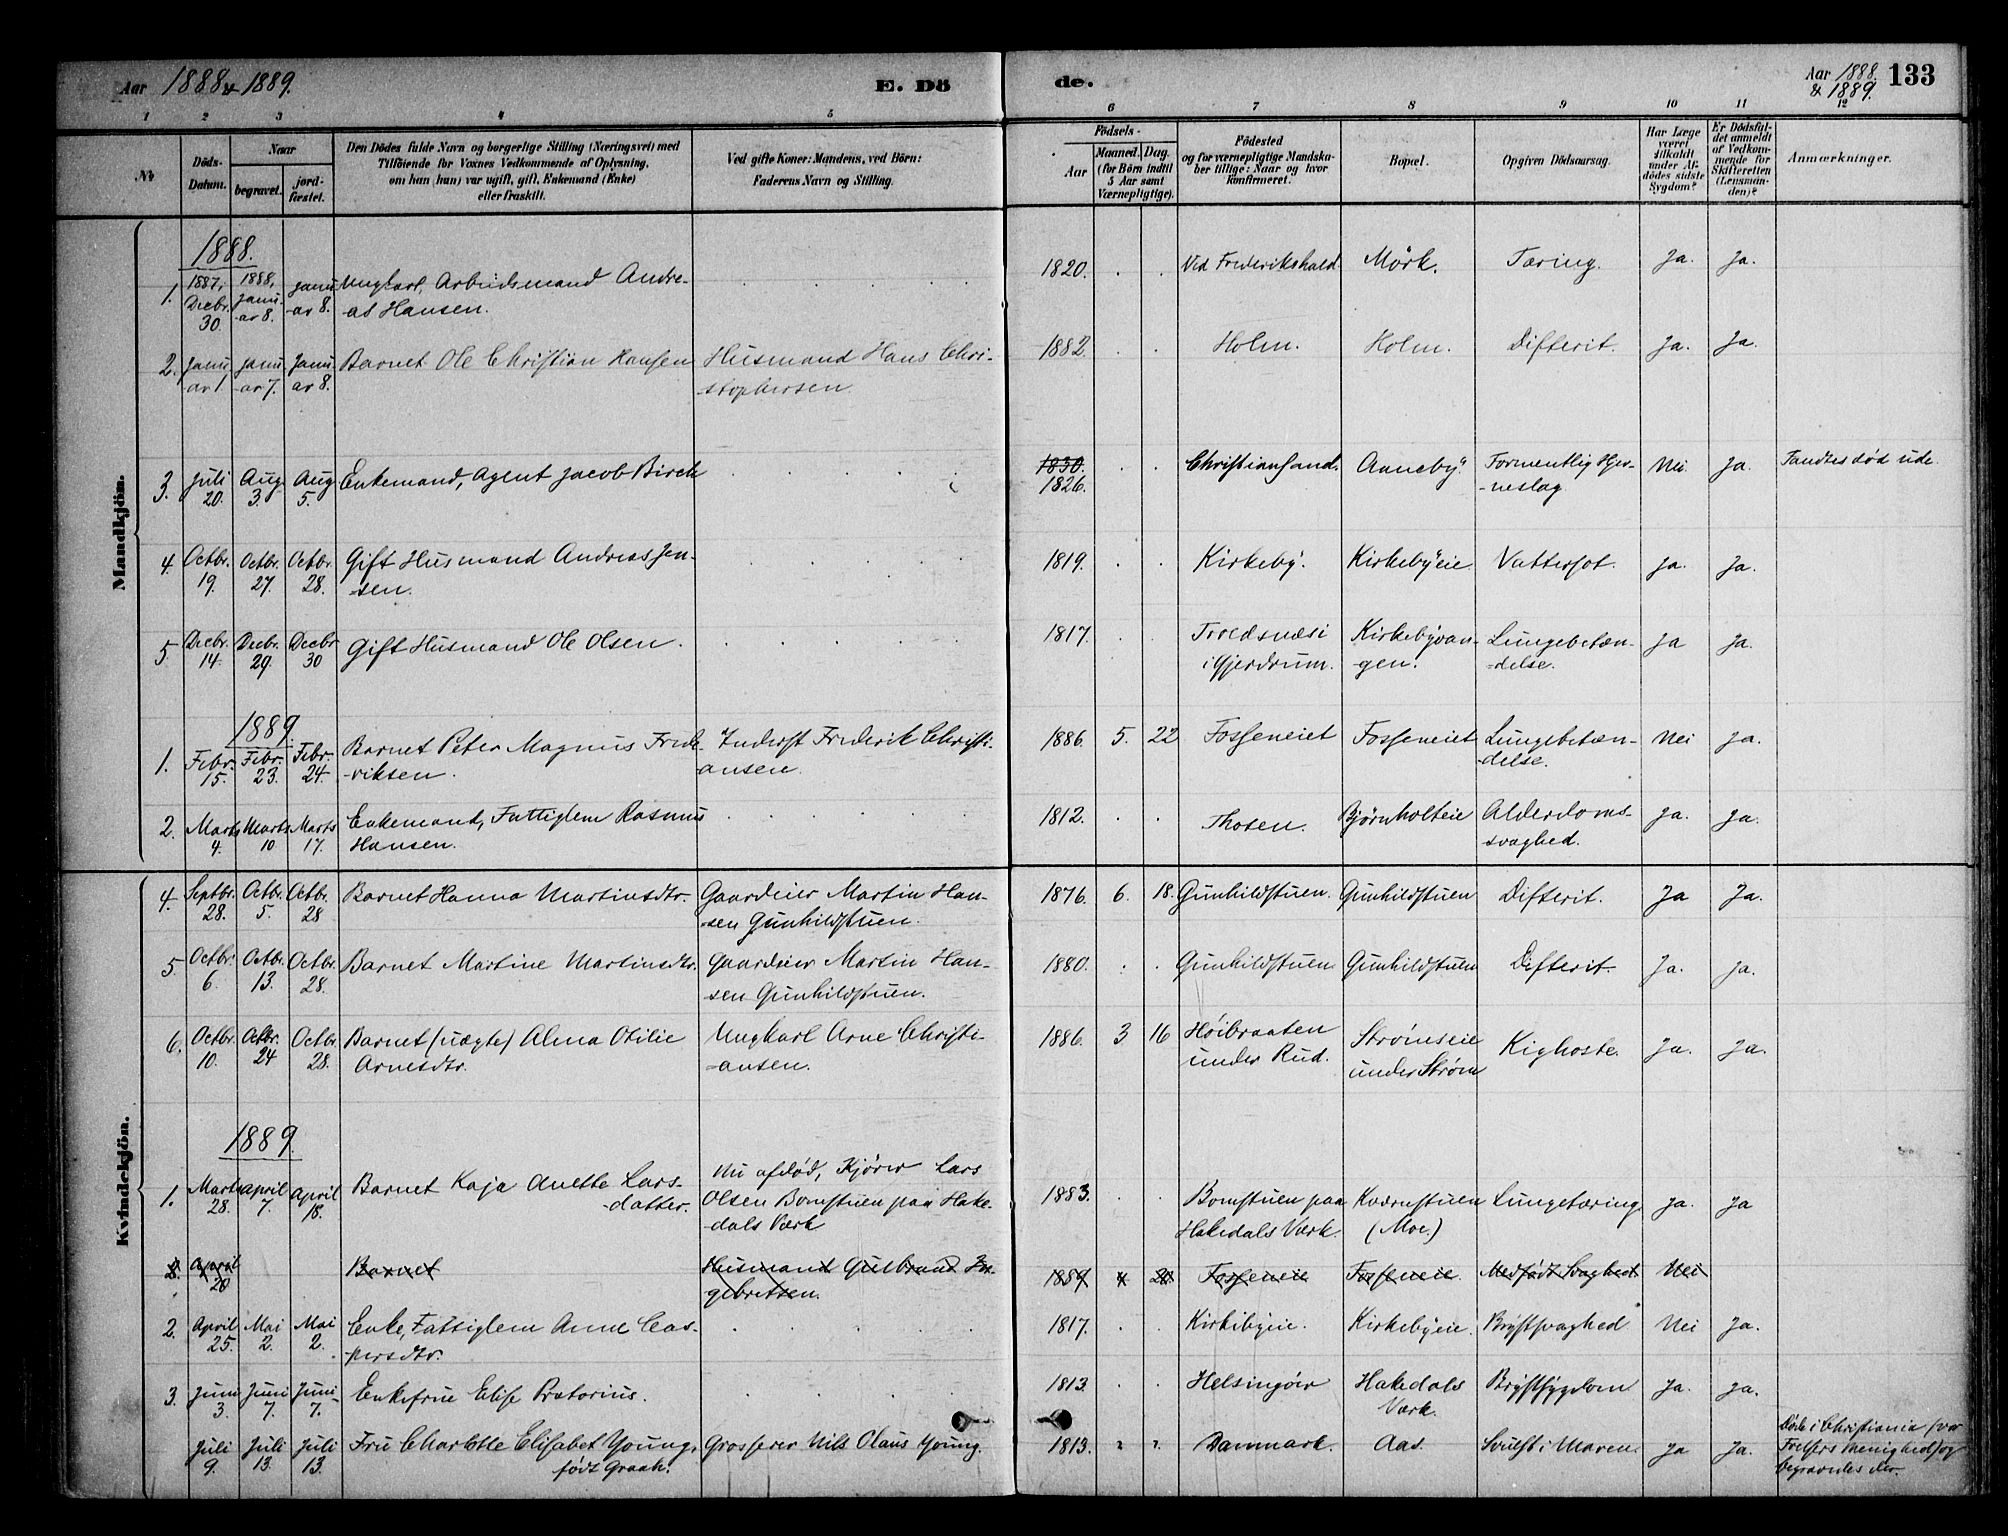 Aar 1888 & 1889.
E. Dö
de.
Aar 1888. & 1889.
133
1 2 3 4 5 6 7 8 9 10 11 12
Nr
Döds-Datum.
Naar
begravet.
jord-fæstet.
Den Dödes fulde Navn og borgerlige Stilling (Næringsvei) med
Tilföiende for Voxnes Vedkommende af Oplysning,
om han (hun) var ugift, gift, Enkemand (Enke)
eller fraskilt.
Ved gifte Koner: Mandens, ved Börn:
Faderens Navn og Stilling.
Födsels-
Aar
Maaned. Dag.
(for Börn indtil
5 Aar samt
Værnepligtige).
Födested
og for værnepligtige Mandska-
ber tillige: Naar og hvor
konfirmeret.
Bopæl.
Opgiven Dödsaarsag.
Har Læge
været
tilkaldt
under Af-
dödes sidste
Sygdom?
Er Dödsfal-
det anmeldt
af Vedkom-
mende for
Skifteretten
(Lensman-
den)?
Anmærkninger.
Mandkjön.
1888.
1. 1887, Decbr. 30. 1888, Janu-ar 8. Janu-ar 8. Ungkarl, Arbeidsmand Andre-
as Hansen. 1820. Ved Frederikshald Mörk. Tæring. Ja. Ja.
2. Janu-ar 1. Janu-ar 7. Janu-ar 8. Barnet Ole Christian Hansen Husmand Hans Chri-
stophersen. 1882. Holm. Holm. Difterit. Ja. Ja.
3. Juli 20. Aug. 3. Aug 5. Enkemand, Agent Jacob Birch 1830. 1826. Christiansand. Aaneby. Formentlig Hjer-
neslag Nei Ja. Fandtes død ude.
4. Octbr. 19. Octbr. 27. Octbr. 28. Gift Husmand Andreas Jen-
sen. 1819. Kirkeby. Kirkebyeie. Vattersot. Ja. Ja.
5. Decbr. 14. Decbr. 29. Decbr 30 Gift Husmand Ole Olsen. 1817. i Gjerdrum. Kirkebyvan-
gen. Lungebetæn-
delse. Ja Ja.
1889.
1. Febr. 15. Febr. 23. Febr. 24. Barnet Peter Magnus Frede-
riksen. Inderst Frederik Christi-
ansen. 1886. 5. 22 Fosseneiet Fosseneiet Lungebetæn-
delse. Nei Ja.
2. Marts 4. Marts 10 Marts 17. Enkemand, Fattiglem Rasmus
Hansen. 1812. Thosen. Bjørnholteie Alderdoms-
svaghed. Ja. Ja.
Kvindekjön.
4. Septbr. 28. Octbr. 5. Octbr. 28 Barnet Hanna Martinsdtr. Gaardeier Martin Han-
sen Gunhildstuen. 1876. 6. 18. Gunhildstuen. Gunhildstuen Difterit. Ja Ja.
5 Octbr. 6. Octbr. 13. Octbr. 28. Barnet Martine Martinsdtr. Gaardeier Martin Han-
sen Gunhildstuen. 1880. Gunhildstuen Gunhildstuen Difterit. Ja. Ja.
6. Octbr. 10. Octbr. 24 Octbr 28. Barnet (uægte) Alma Otilie
Arnesdtr. Ungkarl Arne Christi-
ansen. 1886. 3 16 Höibraaten
under Rud. Strømseie
under Strøm Kighoste. Ja. Ja.
1889.
1. Marts 28. April 7. April 18. Barnet Kaja Anette Lars-
datter. Nu afdød, Kjører Lars
Olsen Bomstuen paa Hake-
dals Værk 1883. Bomstuen paa
Hakedals Værk. Kværnstuen
(Moe.) Lungetæring. Ja. Ja
2. April 20 Barnet Husmand Gulbrand In-
gebretsen. 1889 4 20 Fosseneie Fosseneie. Medfødt Svaghed Nei
2. April 25. Mai 2. Mai 2. Enke, Fattiglem Anne Cas-
persdtr. 1817. Kirkebyeie. Kirkebyeie. Brystsvaghed Nei Ja.
3. Juni 3. Juni 7. Juni 7. Enkefrue Elise Prætorius. 1813. Helsingör Hakedals
Værk. Brystsygdom Ja. Ja.
Juli 9. Juli 13. Juli 13. Fru Charlotte Elisabet Young,
født Graah. Grosserer Nils Claus Young. 1813. ? ?. Danmark. Aas. Svulst i Maven. Ja Ja. Døde i Christiania (vor
Frelsers Menighed) og
begravedes der.